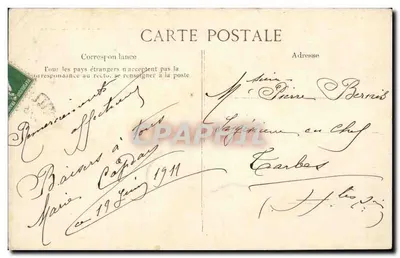 CARTE POSTALE
Correspondance
Tous les pays étrangers n'acceptent pas la
correspondance au recto, se renseigner à la poste
Adresse
Remerciements
affectueux
Baisers à tous
Marie
ce 19 Juin 1911
Monsieur
Pierre
Ingénieur en chef
Tarbes
Htes
CPARAMA